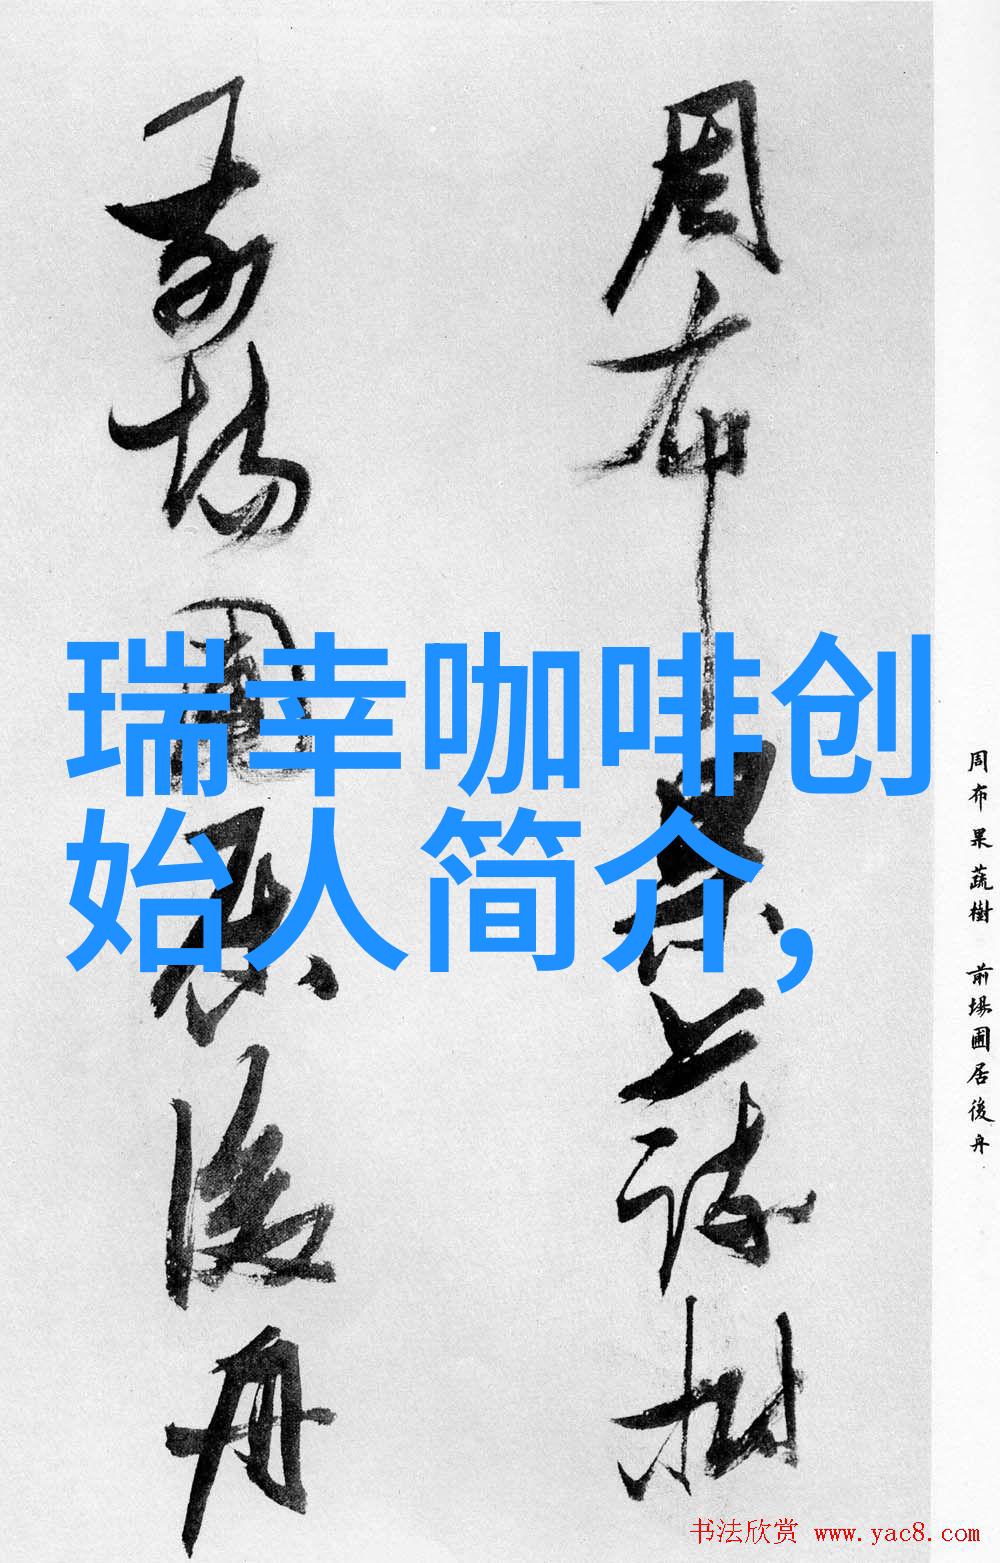 瑞幸咖啡创
始人简介,
周布果蔬樹
前場圃居後舟
周布果蔬樹 前場圃居後舟
书法欣赏 www.yac8.com